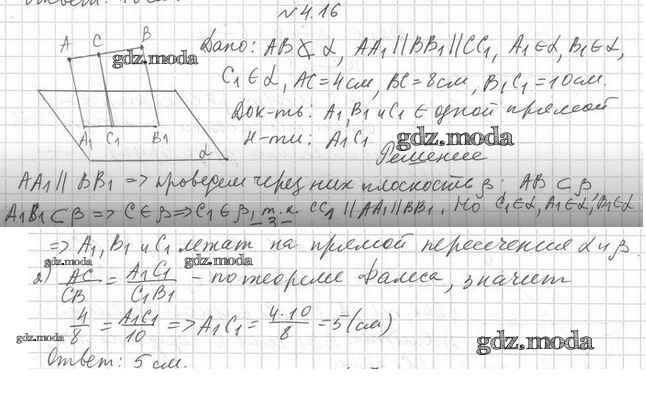 №4.16
A C B
Дано: AB ⊄ α, AA₁ || BB₁ || CC₁, A₁∈α, B₁∈α,
gdz.moda
C₁∈α, AC = 4 см, BC = 8 см, B₁C₁ = 10 см.
Док-ть: A₁, B₁ и C₁ ∈ одной прямой
Н-ти: A₁C₁
gdz.moda
A₁ C₁ B₁ α
Решение
AA₁ || BB₁ => проведем через них плоскость β; AB ⊂ β,
A₁B₁ ⊂ β => C∈β => C₁∈β, т.к. CC₁ || AA₁ || BB₁. Но C₁∈α, A₁∈α, B₁∈α
=> A₁, B₁ и C₁ лежат на прямой пересечения α и β.
gdz.moda gdz.moda
2) AC/CB = A₁C₁/C₁B₁ - по теореме Фалеса, значит
4/8 = A₁C₁/10 => A₁C₁ = 4·10/8 = 5 (см)
gdz.moda gdz.moda
Ответ: 5 см.